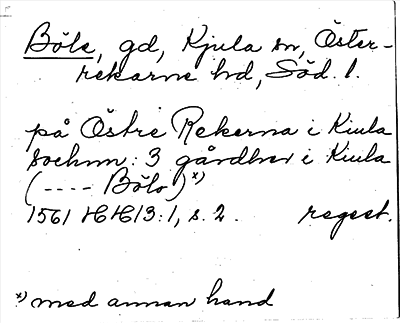 Böle, gd, Kjula sn, Öster-
rekarne hd, Söd. l.
på Östre Rekerna i Kiula
sochnn: 3 gårdher i Kiula
(---- Böle)*)
1561 HH13:1, s. 2. regest.
*) med annan hand